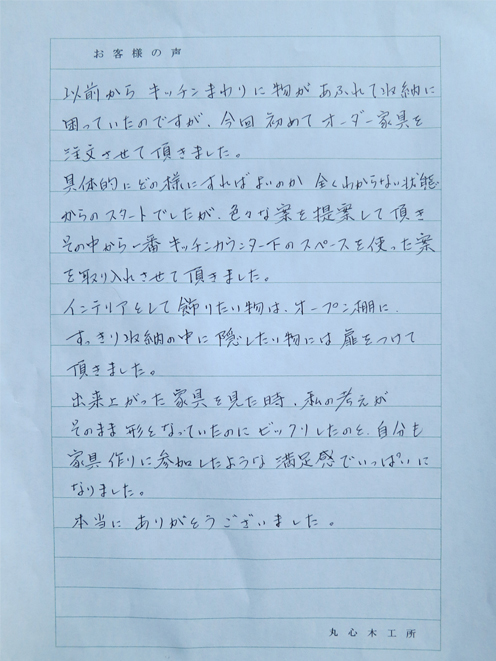 お客様の声
以前から キッチンまわりに 物が あふれて収納に
困っていたのですが、今回 初めて オーダー家具を
注文させて頂きました。
具体的にどの様にすればよいのか 全くわからない状態
からのスタートでしたが、色々な案を提案して頂き
その中から一番 キッチンカウンター下のスペースを使った案
を取り入れさせて頂きました。
インテリアとして 飾りたい物は、オープン棚に、
すっきり収納の中に 隠したい物には 扉をつけて
頂きました。
出来上がった 家具を見た時、私の考えが
そのまま 形となっていたのに ビックリしたのと、自分も
家具作りに参加したような 満足感でいっぱいに
なりました。
本当に ありがとうございました。
丸心木工所